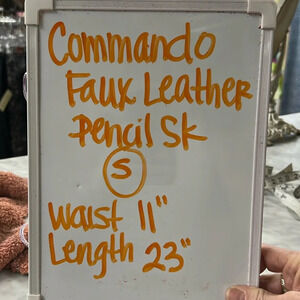 Commando
Faux Leather
Pencil Sk
S
Waist 11"
Length 23"